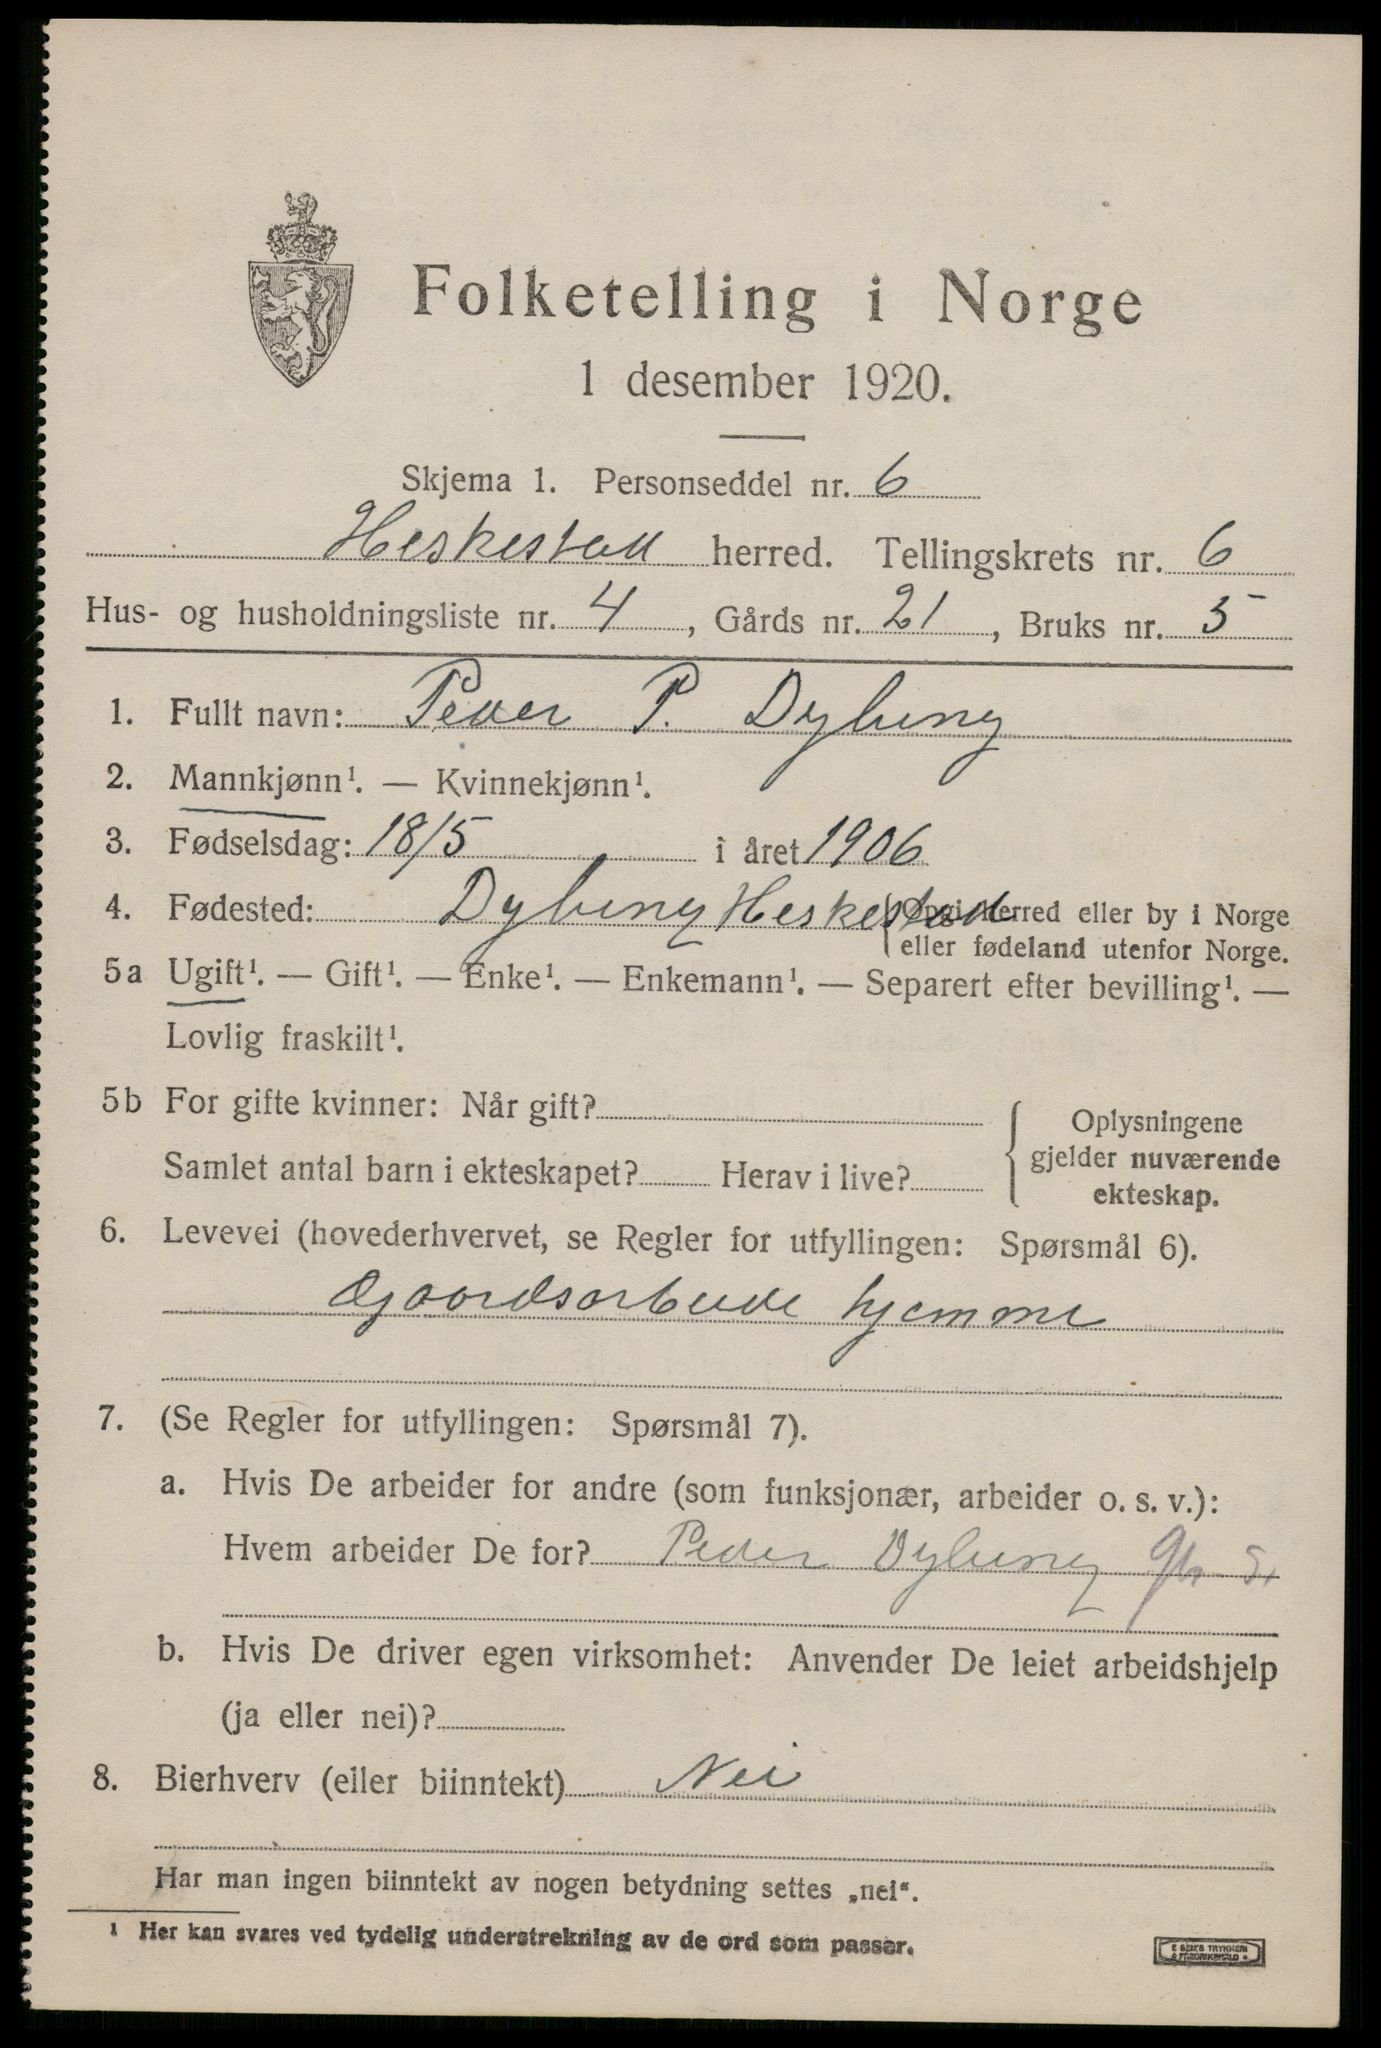 Folketelling i Norge
1 desember 1920.
Skjema 1. Personseddel nr. 6
Heskestad herred. Tellingskrets nr. 6
Hus- og husholdningsliste nr. 4, Gårds nr. 21, Bruks nr. 5
1. Fullt navn: Peder P. Dybing
2. Mannkjønn¹. — Kvinnekjønn¹.
3. Fødselsdag: 18/5 i året 1906
4. Fødested: Dybing Heskestad {Opgi herred eller by i Norge
eller fødeland utenfor Norge.
5a Ugift¹. — Gift¹. — Enke¹. — Enkemann¹. — Separert efter bevilling¹. —
Lovlig fraskilt¹.
5b For gifte kvinner: Når gift?
Samlet antal barn i ekteskapet? Herav i live?
Oplysningene
gjelder nuværende
ekteskap.
6. Levevei (hovederhvervet, se Regler for utfyllingen: Spørsmål 6).
Gaardsarbeide hjemme
7. (Se Regler for utfyllingen: Spørsmål 7).
a. Hvis De arbeider for andre (som funksjonær, arbeider o. s. v.):
Hvem arbeider De for? Peder Dybing
b. Hvis De driver egen virksomhet: Anvender De leiet arbeidshjelp
(ja eller nei)?
8. Bierhverv (eller biinntekt) Nei
Har man ingen biinntekt av nogen betydning settes „nei“.
¹ Her kan svares ved tydelig understrekning av de ord som passer.